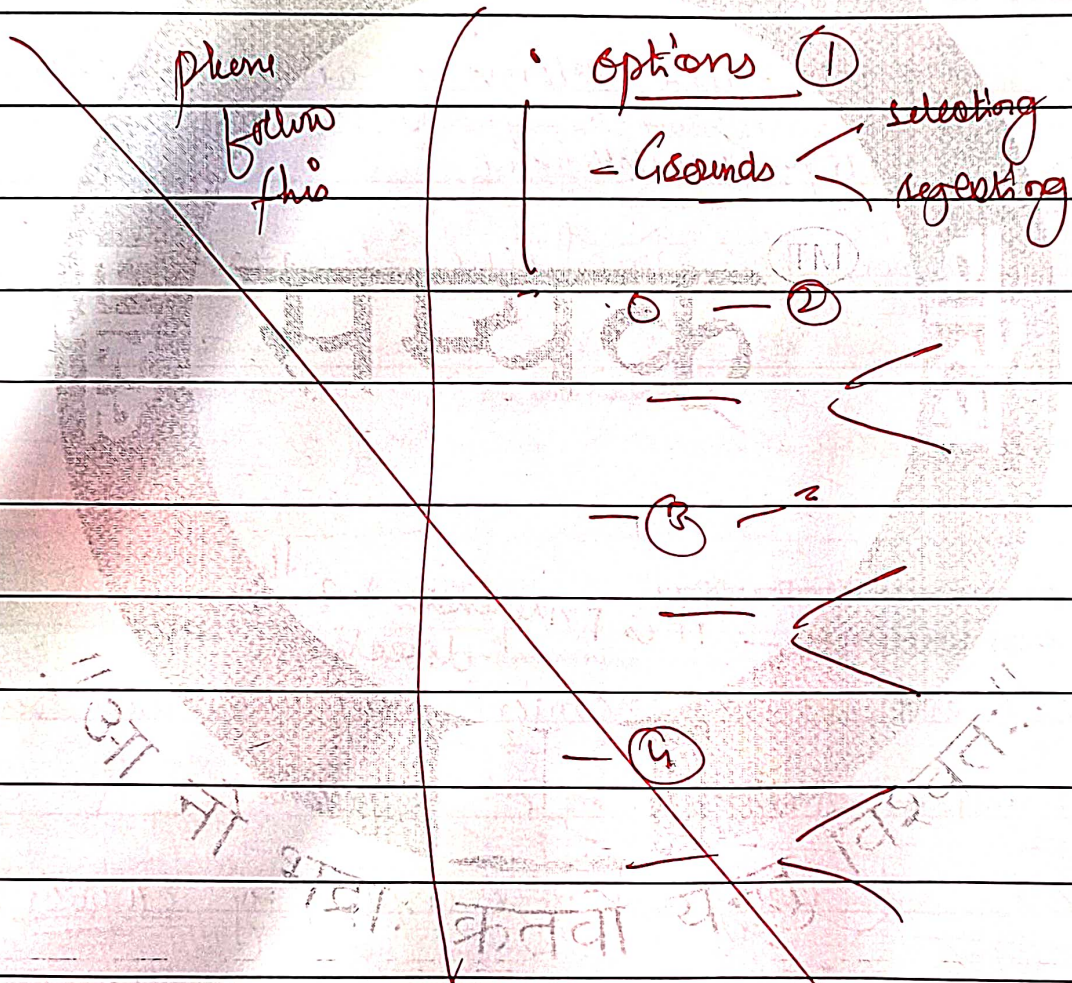 please
follow
this
• options ①
- Grounds
selecting
rejecting
TN
0 — ②
सम्यक
— ③ —
— ④
॥ आ नो भद्राः क्रतवो यन्तु विश्वतः ॥